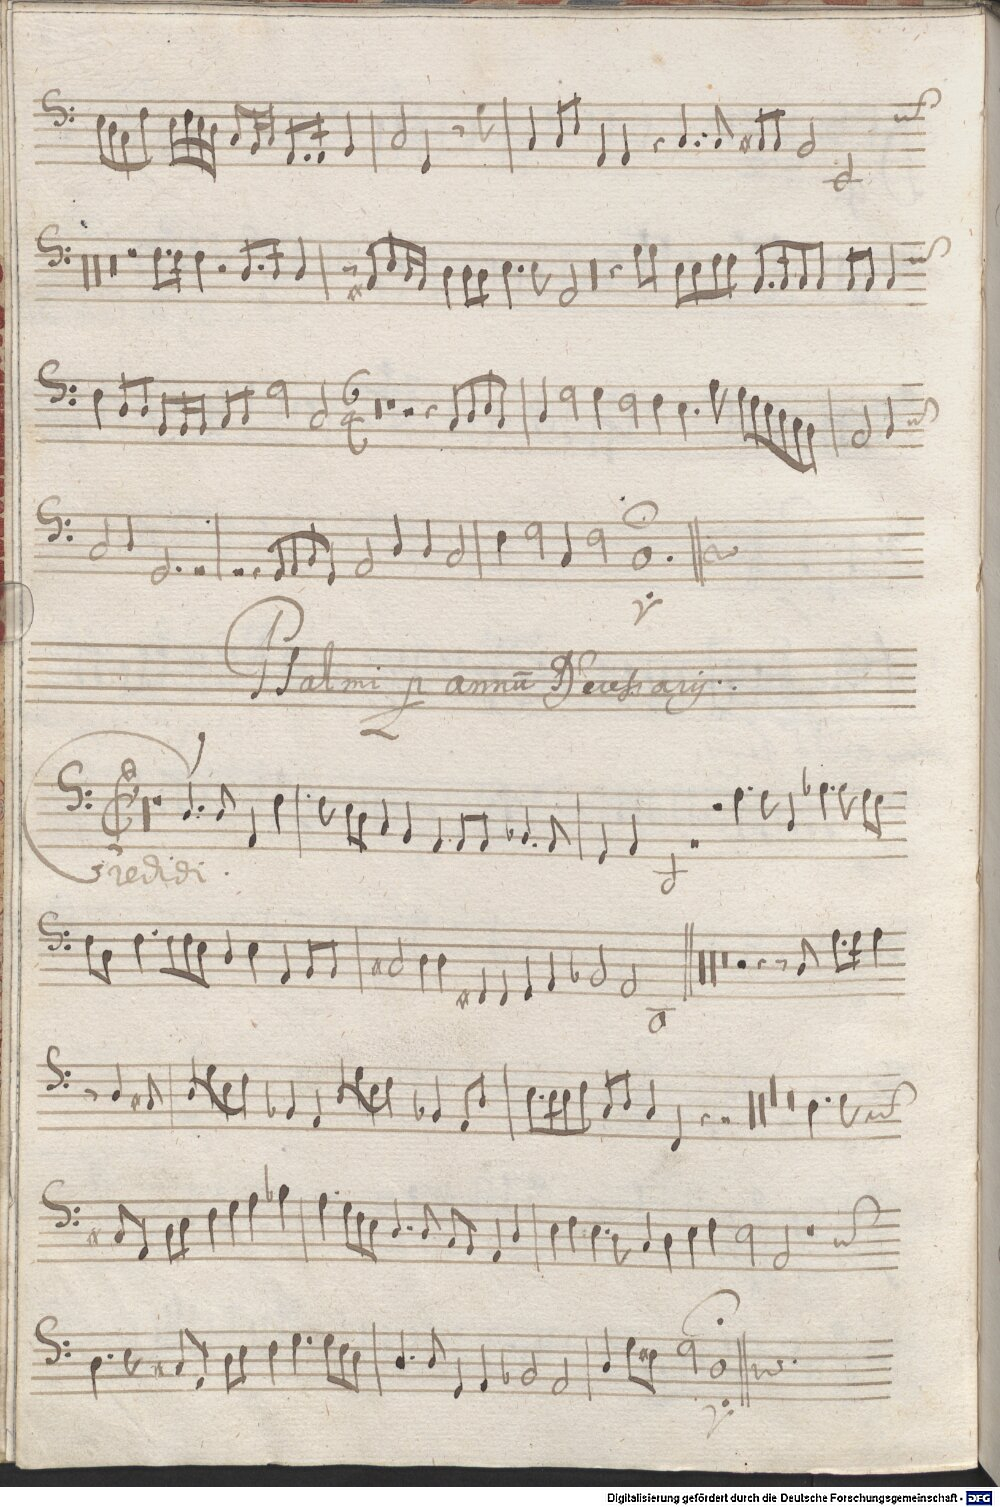 6
4
v.
Psalmi p annū Necessarij.
Credidi.
v.
Digitalisierung gefördert durch die Deutsche Forschungsgemeinschaft - DFG